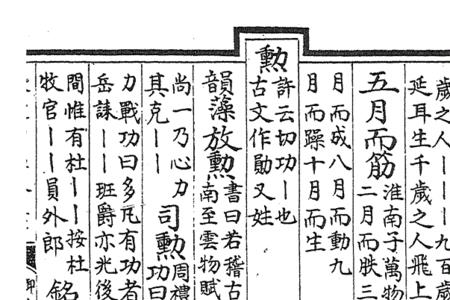 歲之人丨丨丨九百歲
延耳生千歲之人飛上
五月而筋 淮南子萬物
二月而胅三
月而成八月而動九
月而躁十月而生
勲 許云切功丨也
古文作勛又姓
韻藻放勲 書曰若稽古
南至雲物賦
尚一乃心力
其克丨丨
司勲 周禮
功曰
力戰功曰多凡有功者
岳誄丨丨班爵亦光後
間惟有杜丨丨按杜
牧官丨丨員外郎
銘